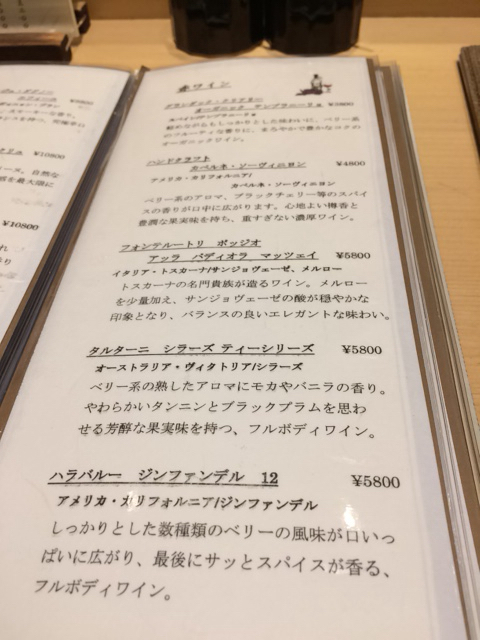 ¥10800
¥10800
赤ワイン
オーガニック・テンプラニーリョ ¥3800
ハンドクラフト
カベルネ・ソーヴィニヨン ¥4800
アメリカ・カリフォルニア/
カベルネ・ソーヴィニヨン
ベリー系のアロマ、ブラックチェリー等のスパイ
スの香りが口中に広がります。心地よい樽香と
豊潤な果実味を持ち、重すぎない濃厚ワイン。
フォンテルートリ ポッジオ
アッラ バディオラ マッツェイ ¥5800
イタリア・トスカーナ/サンジョヴェーゼ、メルロー
トスカーナの名門貴族が造るワイン。メルロー
を少量加え、サンジョヴェーゼの酸が穏やかな
印象となり、バランスの良いエレガントな味わい。
タルターニ シラーズ ティーシリーズ ¥5800
オーストラリア・ヴィクトリア/シラーズ
ベリー系の熟したアロマにモカやバニラの香り。
やわらかいタンニンとブラックプラムを思わ
せる芳醇な果実味を持つ、フルボディワイン。
ハラバルー ジンファンデル 12 ¥5800
アメリカ・カリフォルニア/ジンファンデル
しっかりとした数種類のベリーの風味が口いっ
ぱいに広がり、最後にサッとスパイスが香る、
フルボディワイン。